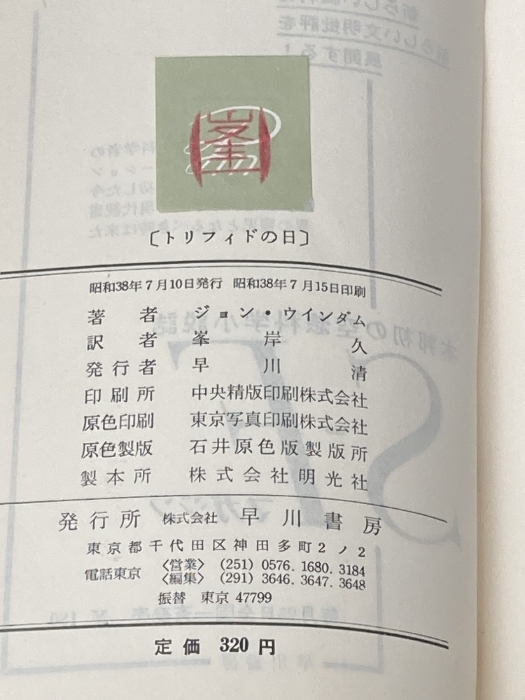 峯
〔トリフィドの日〕
昭和38年7月10日発行 昭和38年7月15日印刷
著者 ジョン・ウインダム
訳者 峯岸久
発行者 早川清
印刷所 中央精版印刷株式会社
原色印刷 東京写真印刷株式会社
原色製版 石井原色版製版所
製本所 株式会社明光社
発行所 株式会社 早川書房
東京都千代田区神田多町2ノ2
電話東京 〈営業〉 (251) 0576. 1680. 3184
〈編集〉 (291) 3646. 3647. 3648
振替 東京 47799
定価 320円